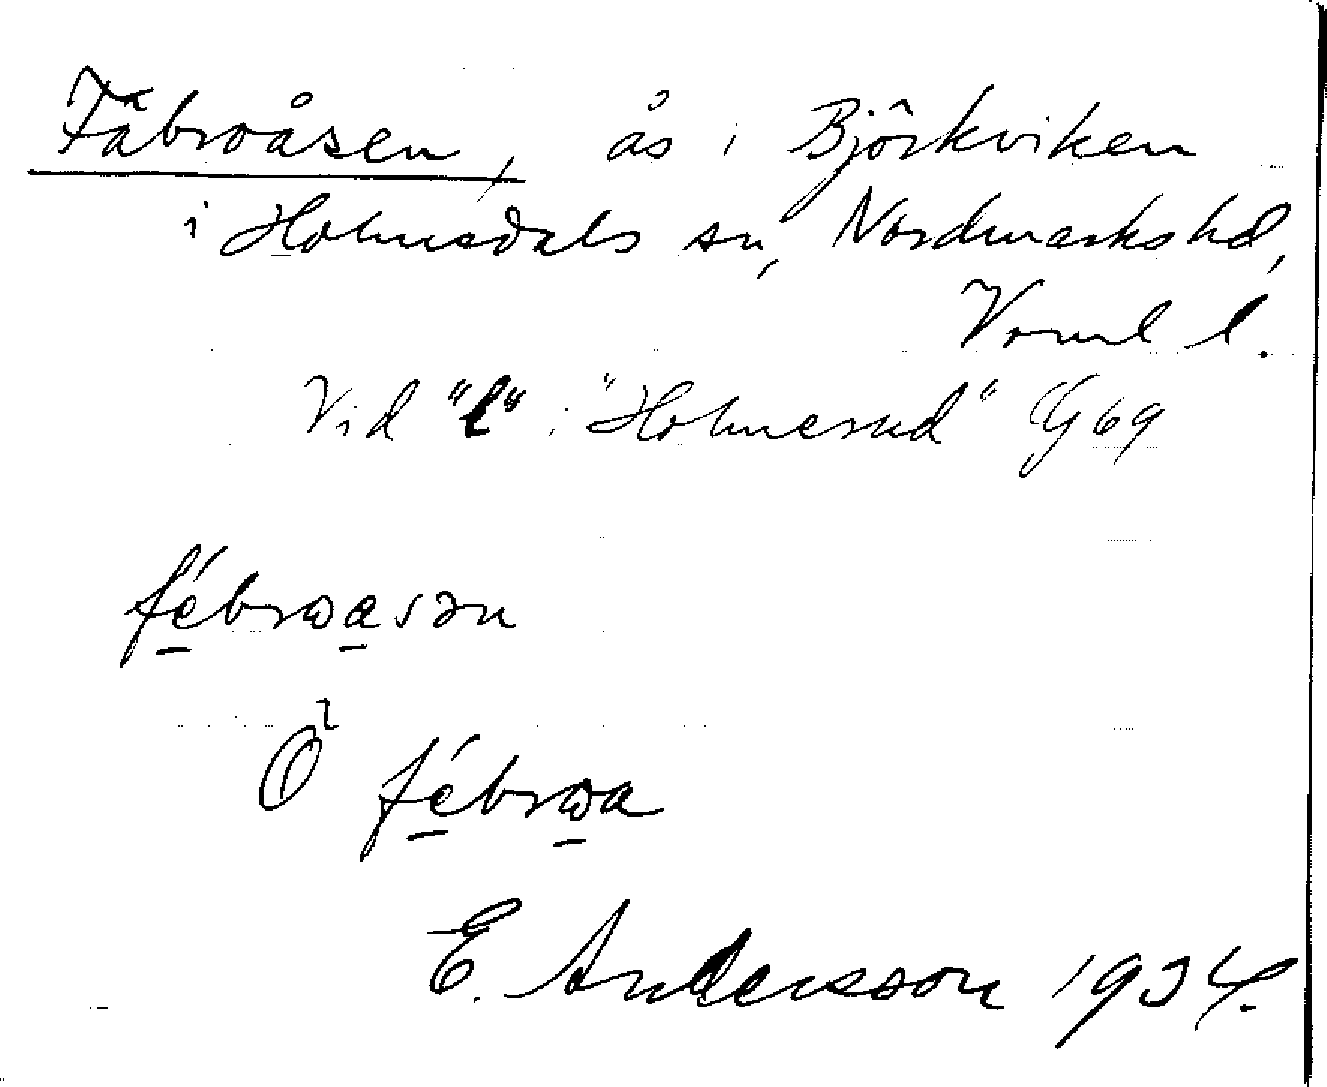 Fäbroåsen, ås i Björkviken
i Holmedals sn, Nordmarks hd,
Vrml l.
Vid "l" i "Holmerud" G 69
fébrωasən
Ö fébrωa
E. Andersson 1934.